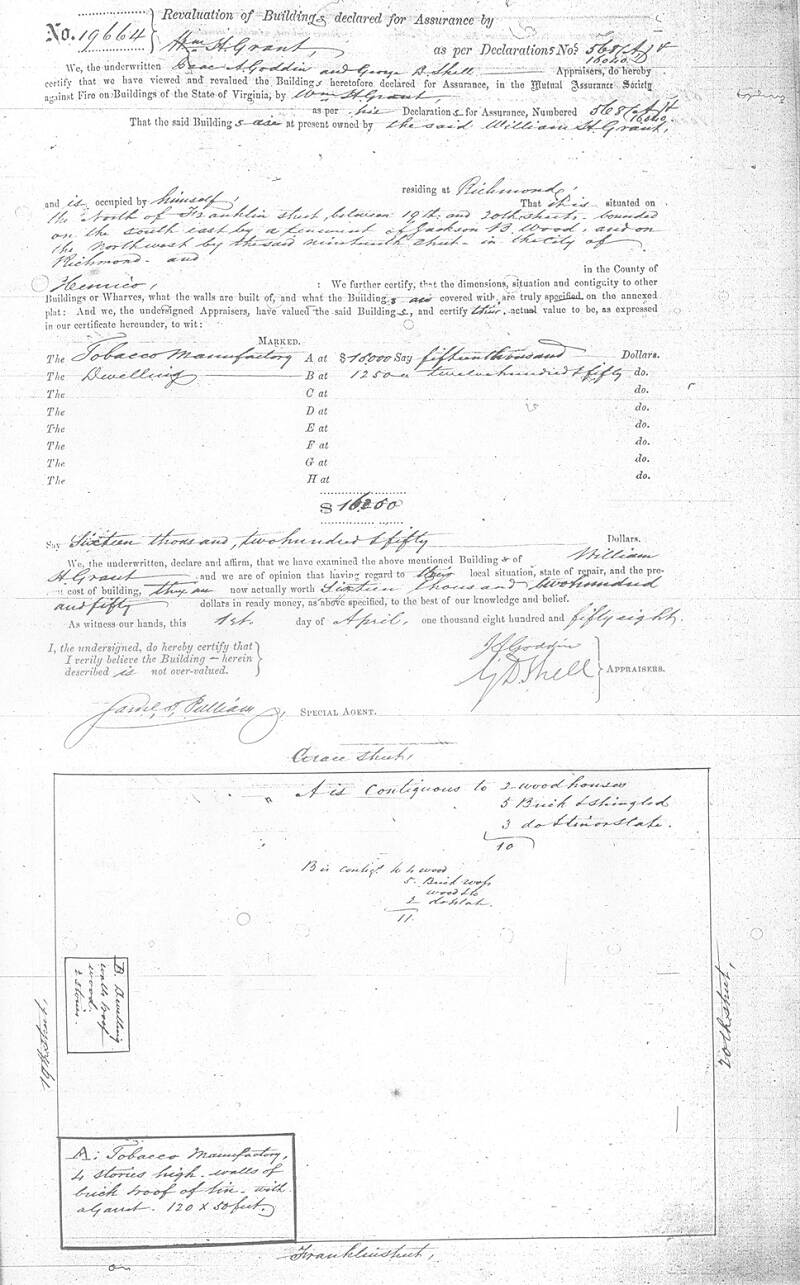 No. 19664
Revaluation of Buildings declared for Assurance by
Wm H Grant, as per Declarations No. 568 (A) &
16040 B
We, the underwritten Isaac A Goddin and George D. Shell Appraisers, do hereby
certify that we have viewed and revalued the Buildings heretofore declared for Assurance, in the Mutual Assurance Society
against Fire on Buildings of the State of Virginia, by Wm H Grant,
as per his Declarations for Assurance, Numbered 568 (A) &
16040,
That the said Buildings are at present owned by the said William H Grant,
residing at Richmond,
and is occupied by himself, That it is situated on
the North of Franklin street, between 19th and 20th streets, bounded
on the south east by a tenement of Jackson B. Wood, and on
the Northwest by the said nineteenth street in the city of
Richmond and
in the County of
Henrico, : We further certify, that the dimensions, situation and contiguity to other
Buildings or Wharves, what the walls are built of, and what the Buildings are covered with, are truly specified on the annexed
plat: And we, the undersigned Appraisers, have valued the said Buildings, and certify their actual value to be, as expressed
in our certificate hereunder, to wit:
MARKED.
The Tobacco Manufactory A at $15000 Say fifteen thousand Dollars.
The Dwelling B at 1250 " twelve hundred & fifty do.
The C at do.
The D at do.
The E at do.
The F at do.
The G at do.
The H at do.
$ 16250
Say Sixteen thousand, two hundred & fifty Dollars.
We, the underwritten, declare and affirm, that we have examined the above mentioned Buildings of William
H Grant and we are of opinion that having regard to their local situation, state of repair, and the pre-
cost of building, they are now actually worth Sixteen thousand two hundred
and fifty dollars in ready money, as above specified, to the best of our knowledge and belief.
As witness our hands, this 1st. day of April, one thousand eight hundred and fifty eight.
I, the undersigned, do hereby certify that
I verily believe the Building herein
described is not over-valued.
I A Goddin
G D Shell
APPRAISERS.
Saml. T. Pulliam, SPECIAL AGENT.
Grace street,
A is Contiguous to 2 wood houses
5 Brick & shingled
3 do & tin or slate.
10
B is contigs. to 4 wood
5 Brick roofs
wood &c
2 do slate.
11
B. Dwelling
walls & roof
wood
2 stories.
19th street,
20th street,
A: Tobacco Manufactory,
4 stories high walls of
brick & roof of tin with
a Garret. 120 x 50 feet.
Franklin street,